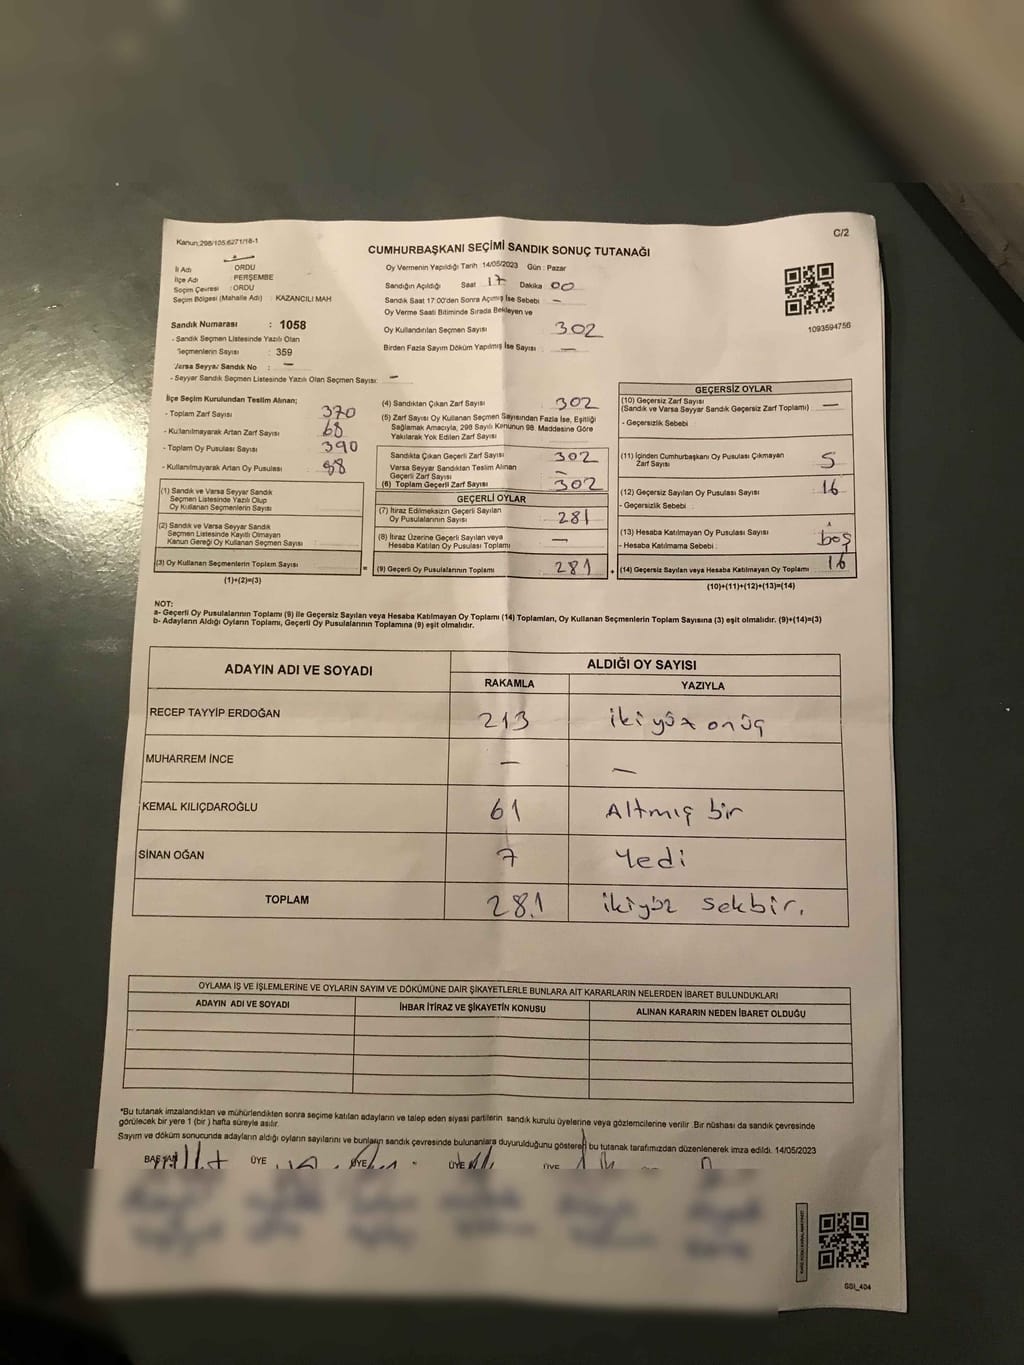 Kanun:298/105,6271/18-1
C/2
CUMHURBAŞKANI SEÇİMİ SANDIK SONUÇ TUTANAĞI
İl Adı : ORDU
İlçe Adı : PERŞEMBE
Seçim Çevresi : ORDU
Seçim Bölgesi (Mahalle Adı) : KAZANCILI MAH
Sandık Numarası : 1058
- Sandık Seçmen Listesinde Yazılı Olan
Seçmenlerin Sayısı : 359
Varsa Seyyar Sandık No : –
- Seyyar Sandık Seçmen Listesinde Yazılı Olan Seçmen Sayısı: –
Oy Vermenin Yapıldığı Tarih :14/05/2023 Gün : Pazar
Sandığın Açıldığı Saat 17 Dakika 00
Sandık Saat 17:00'den Sonra Açılmış İse Sebebi –
Oy Verme Saati Bitiminde Sırada Bekleyen ve
Oy Kullandırılan Seçmen Sayısı 302
Birden Fazla Sayım Döküm Yapılmış İse Sayısı –
1093594756
İlçe Seçim Kurulundan Teslim Alınan;
- Toplam Zarf Sayısı 370
- Kullanılmayarak Artan Zarf Sayısı 68
- Toplam Oy Pusulası Sayısı 390
- Kullanılmayarak Artan Oy Pusulası 88
(1) Sandık ve Varsa Seyyar Sandık
Seçmen Listesinde Yazılı Olup
Oy Kullanan Seçmenlerin Sayısı
(2) Sandık ve Varsa Seyyar Sandık
Seçmen Listesinde Kayıtlı Olmayan
Kanun Gereği Oy Kullanan Seçmen Sayısı :
(3) Oy Kullanan Seçmenlerin Toplam Sayısı
(1)+(2)=(3)
(4) Sandıktan Çıkan Zarf Sayısı 302
(5) Zarf Sayısı Oy Kullanan Seçmen Sayısından Fazla İse, Eşitliği
Sağlamak Amacıyla, 298 Sayılı Kanunun 98. Maddesine Göre
Yakılarak Yok Edilen Zarf Sayısı
Sandıkta Çıkan Geçerli Zarf Sayısı 302
Varsa Seyyar Sandıktan Teslim Alınan
Geçerli Zarf Sayısı –
(6) Toplam Geçerli Zarf Sayısı 302
GEÇERLİ OYLAR
(7) İtiraz Edilmeksizin Geçerli Sayılan
Oy Pusulalarının Sayısı 281
(8) İtiraz Üzerine Geçerli Sayılan veya
Hesaba Katılan Oy Pusulası Toplamı –
= (9) Geçerli Oy Pusulalarının Toplamı 281 +
GEÇERSİZ OYLAR
(10) Geçersiz Zarf Sayısı –
(Sandık ve Varsa Seyyar Sandık Geçersiz Zarf Toplamı)
- Geçersizlik Sebebi
(11) İçinden Cumhurbaşkanı Oy Pusulası Çıkmayan
Zarf Sayısı 5
(12) Geçersiz Sayılan Oy Pusulası Sayısı 16
- Geçersizlik Sebebi :
(13) Hesaba Katılmayan Oy Pusulası Sayısı
- Hesaba Katılmama Sebebi . boş
(14) Geçersiz Sayılan veya Hesaba Katılmayan Oy Toplamı 16
(10)+(11)+(12)+(13)=(14)
NOT:
a- Geçerli Oy Pusulalarının Toplamı (9) ile Geçersiz Sayılan veya Hesaba Katılmayan Oy Toplamı (14) Toplamları, Oy Kullanan Seçmenlerin Toplam Sayısına (3) eşit olmalıdır. (9)+(14)=(3)
b- Adayların Aldığı Oyların Toplamı, Geçerli Oy Pusulalarının Toplamına (9) eşit olmalıdır.
ADAYIN ADI VE SOYADI ALDIĞI OY SAYISI
RAKAMLA YAZIYLA
RECEP TAYYİP ERDOĞAN 213 iki yüz onüç
MUHARREM İNCE – –
KEMAL KILIÇDAROĞLU 61 Altmış bir
SİNAN OĞAN 7 Yedi
TOPLAM 281 ikiyüz sekbir.
OYLAMA İŞ VE İŞLEMLERİNE VE OYLARIN SAYIM VE DÖKÜMÜNE DAİR ŞİKAYETLERLE BUNLARA AİT KARARLARIN NELERDEN İBARET BULUNDUKLARI
ADAYIN ADI VE SOYADI İHBAR İTİRAZ VE ŞİKAYETİN KONUSU ALINAN KARARIN NEDEN İBARET OLDUĞU
*Bu tutanak imzalandıktan ve mühürlendikten sonra seçime katılan adayların ve talep eden siyasi partilerin sandık kurulu üyelerine veya gözlemcilerine verilir .Bir nüshası da sandık çevresinde
görülecek bir yere 1 (bir ) hafta süreyle asılır.
Sayım ve döküm sonucunda adayların aldığı oyların sayılarını ve bunların sandık çevresinde bulunanlara duyurulduğunu gösteren bu tutanak tarafımızdan düzenlenerek imza edildi. 14/05/2023
BAŞKAN ÜYE ÜYE ÜYE ÜYE
GSI_404